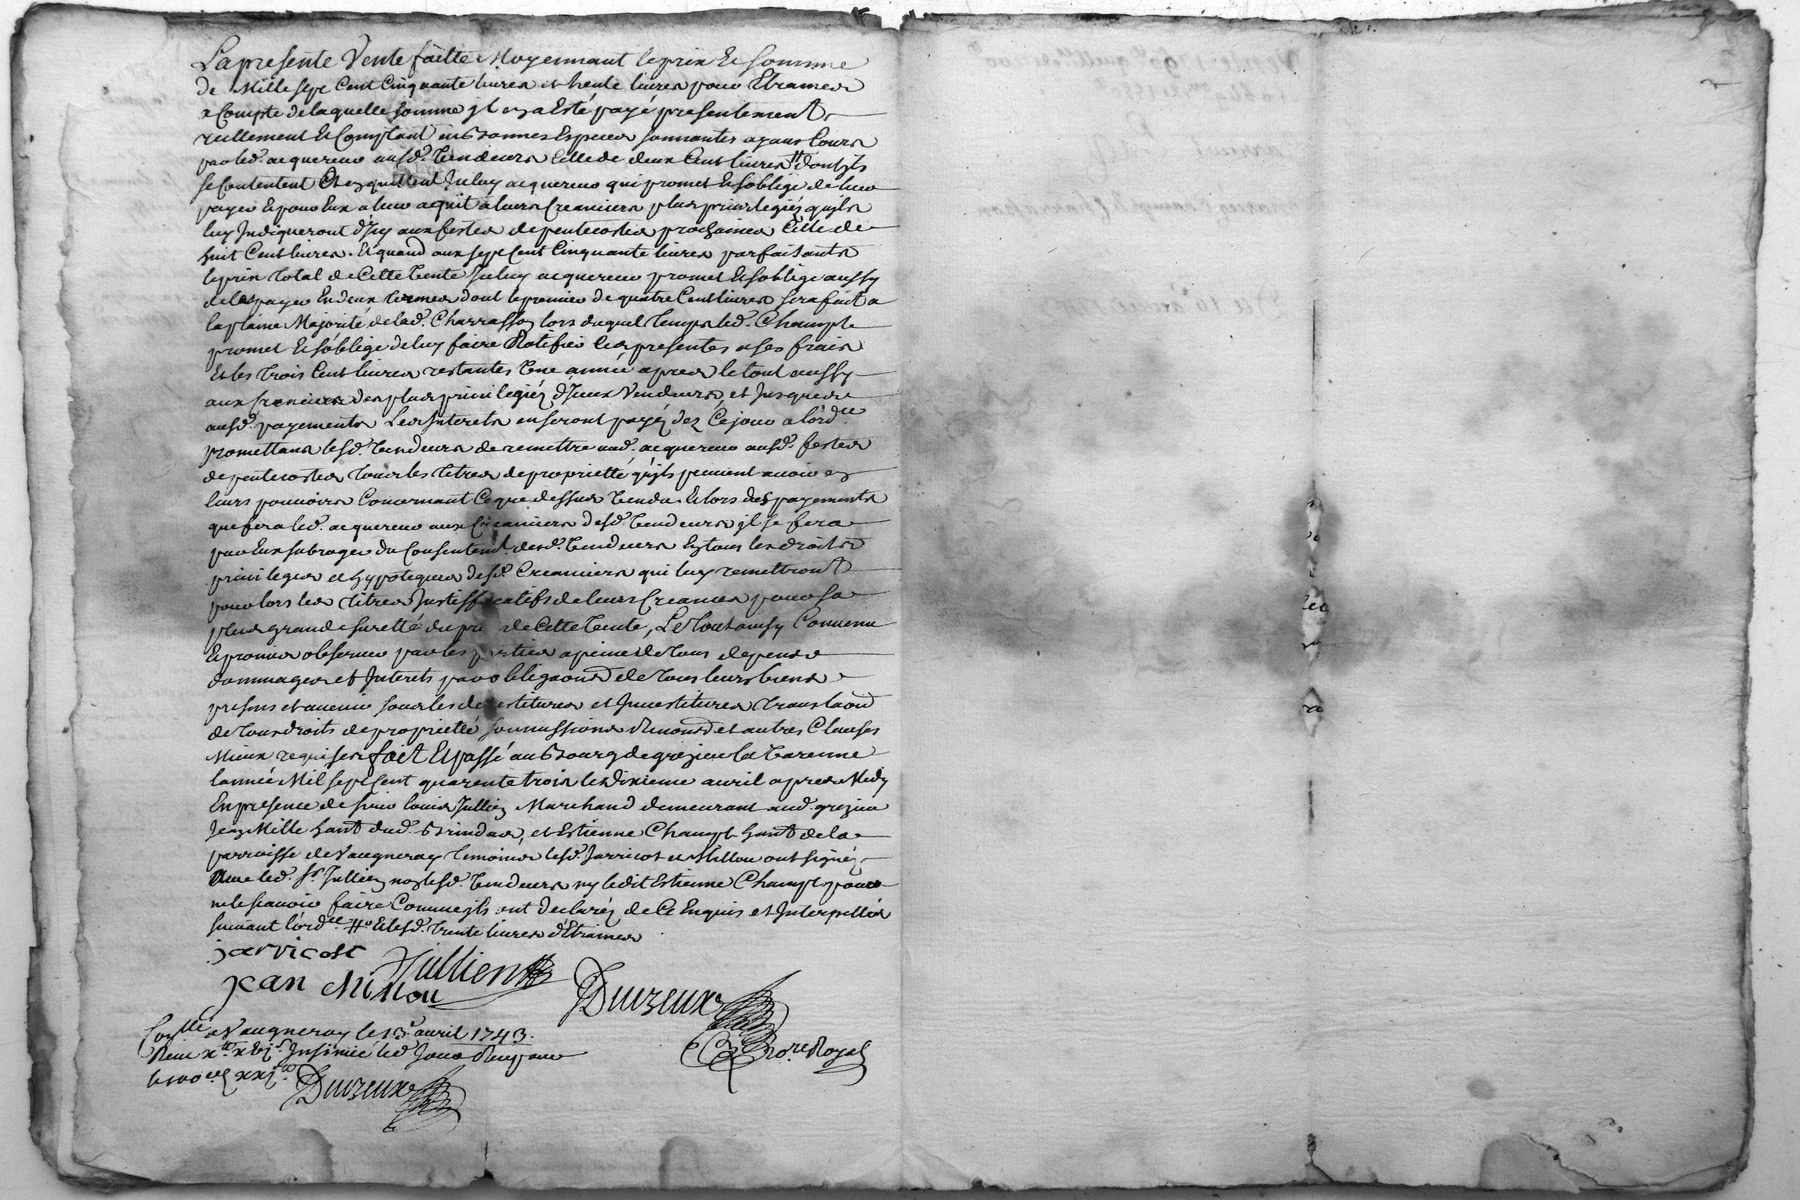 La presente Vente faitte Moyennant le prix Et Somme
de Mille sept Cent Cinquante livres et trente livres pour Etraines
a Compte de laquelle Somme Jl en a Esté payé presentement
reellement Et Comptant en Bonnes Especes sonnantes ayans Cours
par led. acquereur ausd. Vendeurs Celle de deux Cent livres # dont jls
se Contentent Et en quittent Jceluy acquereur qui promet Et soblige de leur
payer Et pour Eux a leur acquit a leurs Creanciers plus privilegiéz quils
luy Jndiqueront d'Jcy aux festes de pentecostes prochaines Celle de
huit Cent livres. Et quand aux sept Cent Cinquante livres parfaisants
le prix total de Cette Vente Jceluy acquereur promet Et soblige aussy
de les payer En deux termes dont le premier de quatre Cent livres sera fait a
la plaine Majorité de lad. Charrasson lors duquel temps led. Champt
promet Et soblige de luy faire Ratifier les presentes a ses frais
Et les trois Cent livres restantes Une année apres le tout aussy
aux Creanciers des plus privilegiéz d'Jceux Vendeurs et Jusques
ausd. payements Les Jnterets en seront payéz dez Ce jour a l'ord.ce
promettans lesd. Vendeurs de remettre aud. acquereur ausd. festes
de pentecostes tous les titres de proprietté qu'jls peuvent avoir en
leurs pouvoirs Concernant Ce que dessus Vendu. Et lors des payements
que fera led. acquereur aux Creanciers desd. Vendeurs jl se fera
par Eux subroger du Consentem.t desd. Vendeurs En tous les droits
privileges et hypoteques desd. Creanciers qui luy remettront
pour lors les titres Justifficatifs de leurs Creances pour sa
plus grande suretté du prix de Cette Vente, Le tout ainsy Convenu
Et promis observer par les parties a peine de tous depens
dommages et Jnterets par obligaons de tous leurs biens
presens et avenir sous les devestitures et Jnvestitures translaon
de tous droits de proprietté soumissions Renonons et autres Clauses
Mieux requises fait Et passé au Bourg de grezieu la Varenne
l'année Mil sept Cent quarente trois le dixieme avril apres Midy
En presence de sieur louis Jullien Marchand demeurant aud. grezieu
Jean Millo hant dud. Brindas, et Estienne Champt hant de la
parroisse de Vaugneray temoins lesd. Jarricot et Millou ont signéz
Avec led. Sr Jullien non lesd. Vendeurs ny ledit Estienne Champt pour
ne le scavoir faire Comme jls ont declaréz de Ce Enquis et Jnterpelléz
suivant l'ord.ce # Et lesd. trente livres d'Etraines
jarricost
Jullien
jean Millou
Duvzeux
Con.llé a Vaugneray le 13.e avril 1743.
Nore Royal
Duvzeux